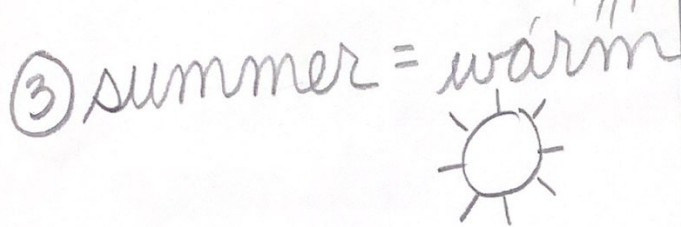 ③ summer = warm